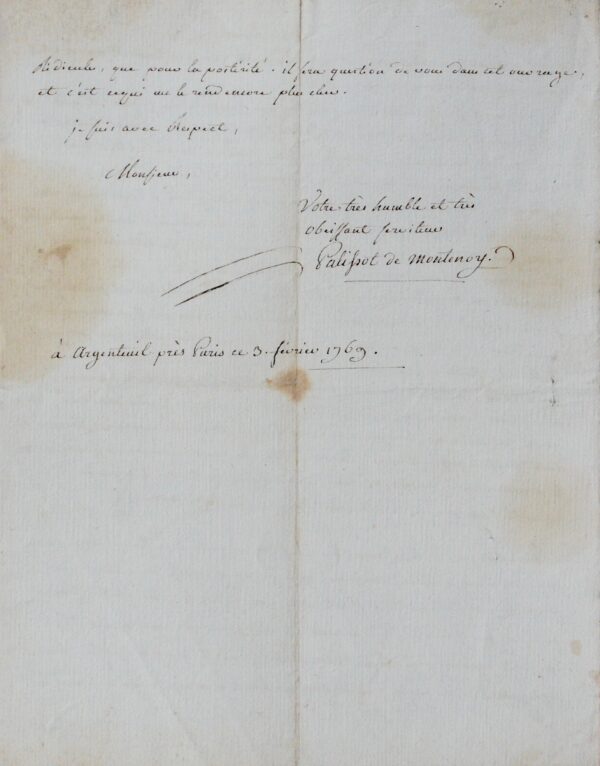 Ridicule, que pour la postérité. il sera question de vous dans cet ouvrage,
et c'est ce qui me le rend encore plus cher.
je suis avec Respect,
Monsieur,
Votre très humble et très
obéissant serviteur
Palissot de Montenoy.
à Argenteuil près Paris ce 3. février 1769.